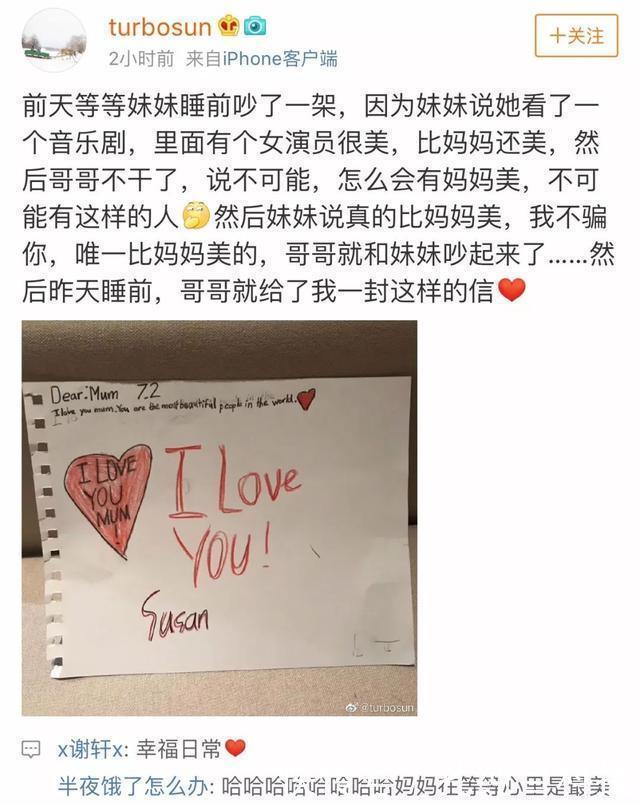 turbosun
2小时前 来自iPhone客户端
+关注
前天等等妹妹睡前吵了一架，因为妹妹说她看了一
个音乐剧，里面有个女演员很美，比妈妈还美，然
后哥哥不干了，说不可能，怎么会有妈妈美，不可
能有这样的人🤔然后妹妹说真的比妈妈美，我不骗
你，唯一比妈妈美的，哥哥就和妹妹吵起来了……然
后昨天睡前，哥哥就给了我一封这样的信❤️
Dear:Mum 7.2
I love you mum.You are the most beautiful people in the world.
I LOVE
YOU
MUM
I Love
YOU!
Susan
@turbosun
x谢轩x: 幸福日常❤️
半夜饿了怎么办: 哈哈哈哈哈哈哈哈妈妈在等等心里是最美